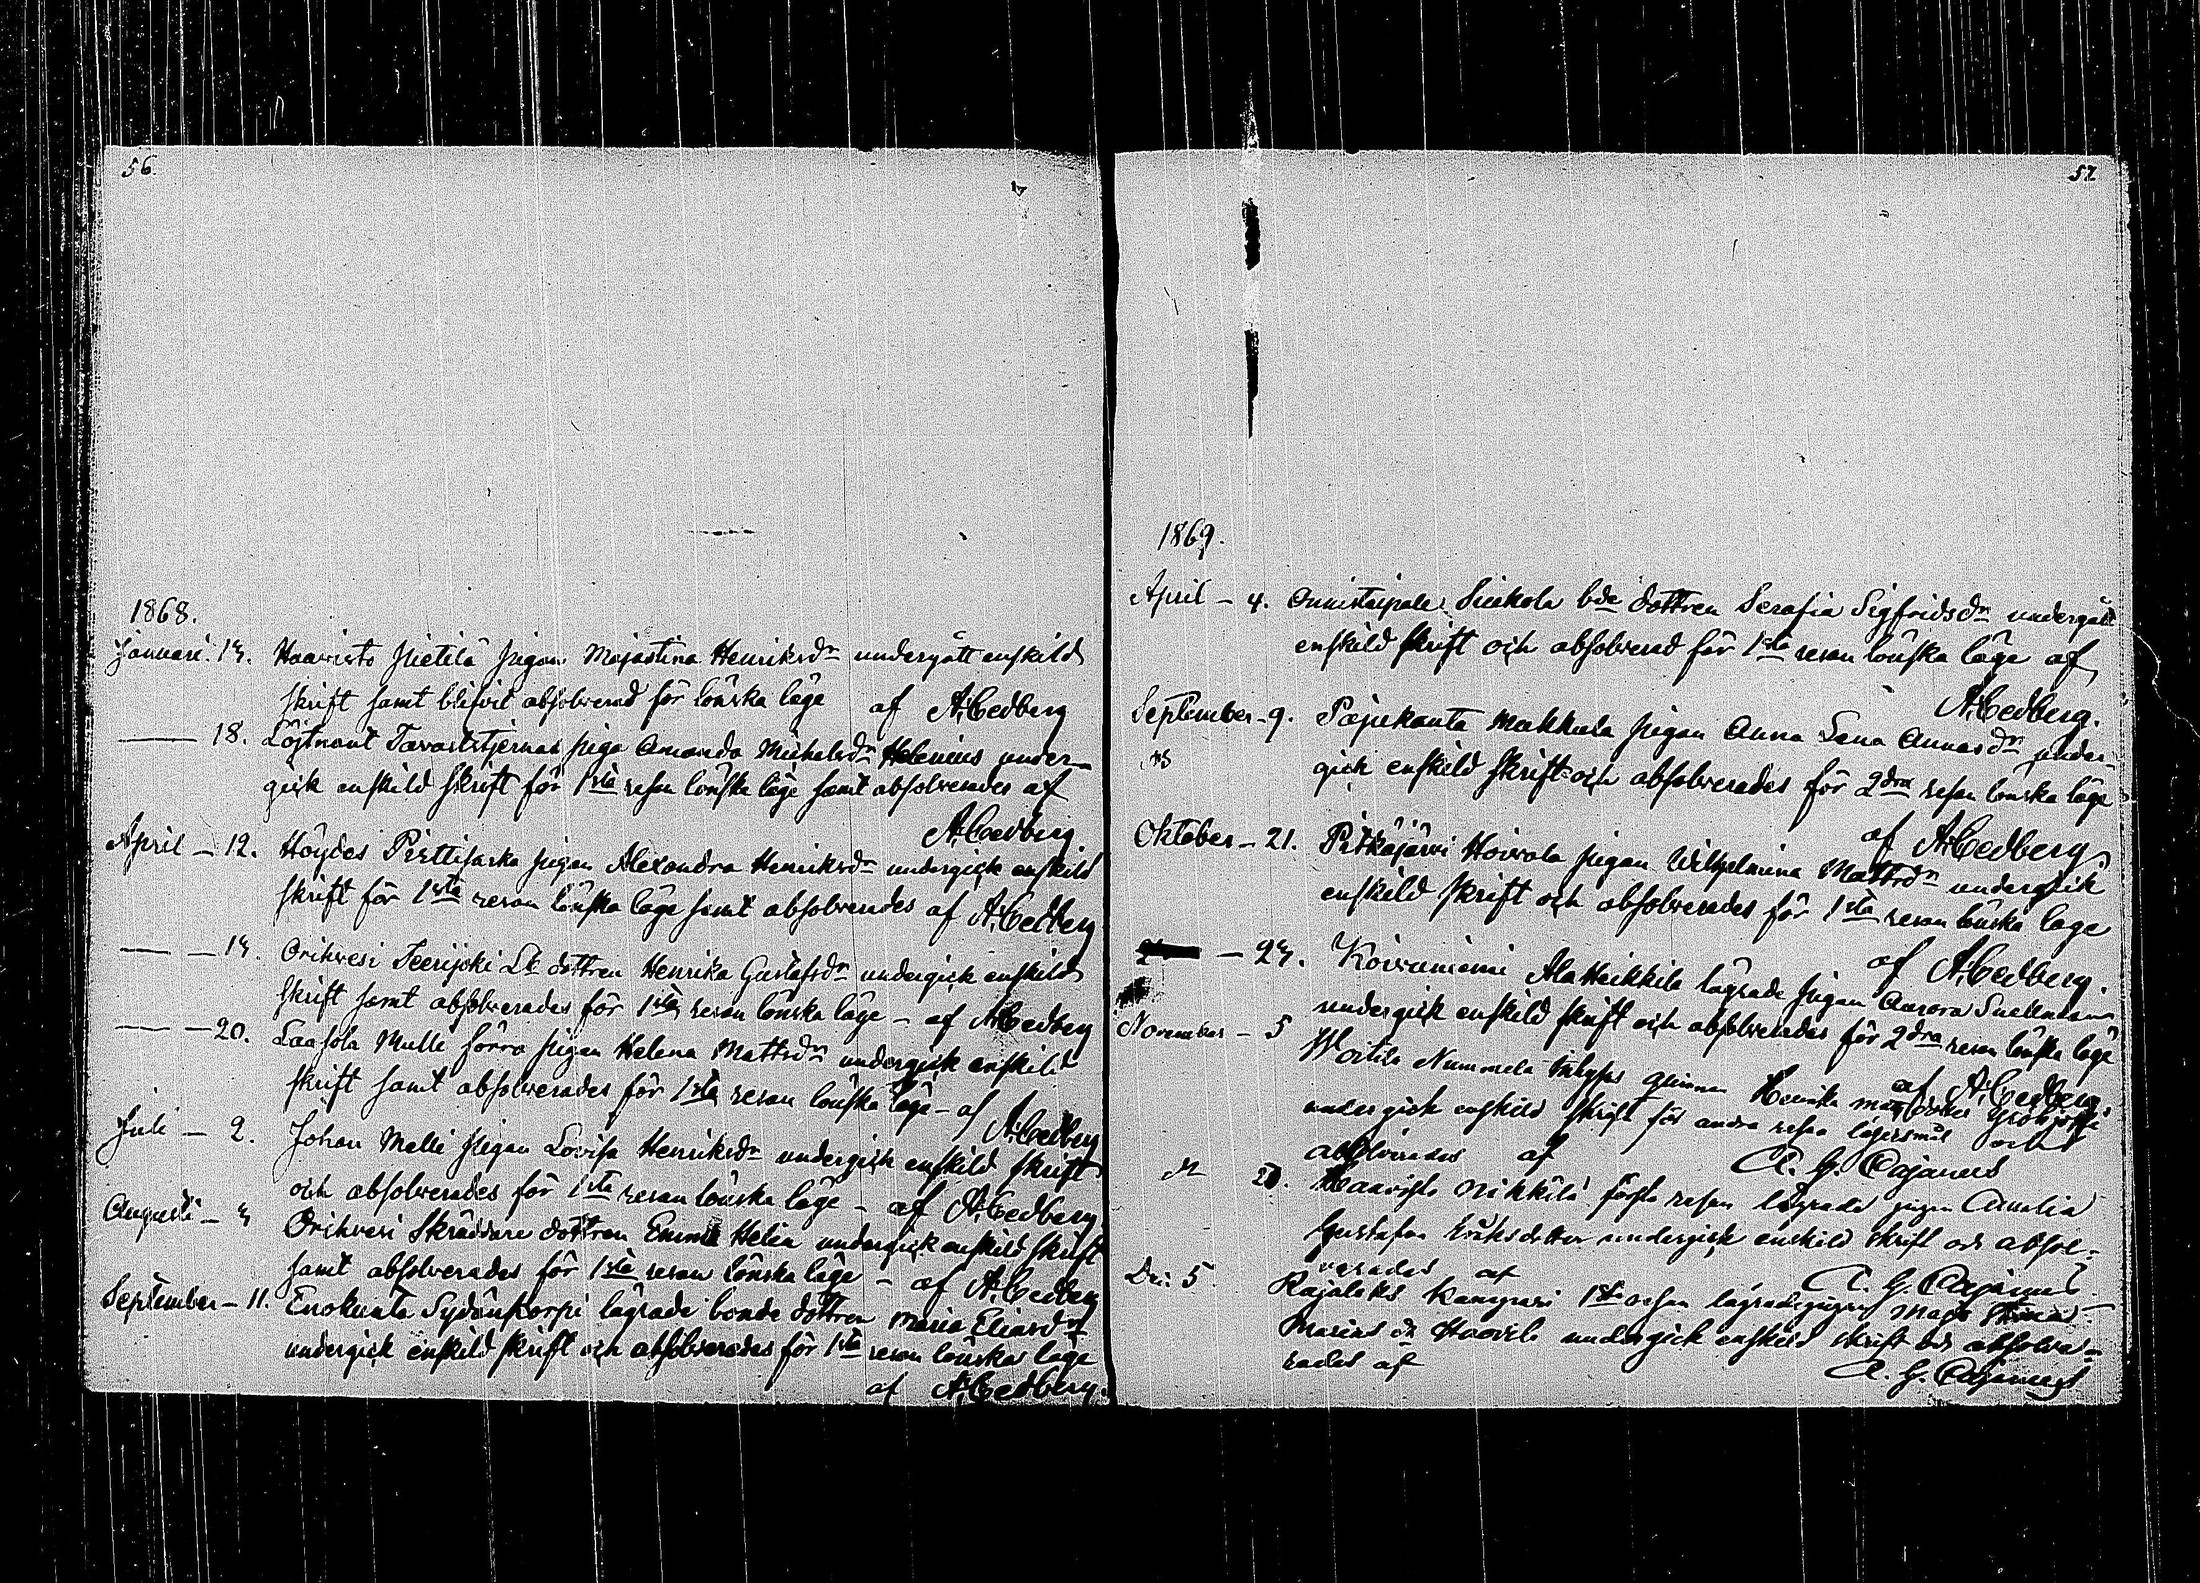 56.
1868.
Januari. 14. Haavisto Pietilä pigan Majastina Henriksdr undergått enskild
skrift samt blifvit absolverad för lönska läge af A. Cedberg
18. Löjtnant Tavaststjernas piga Amanda Michelsdr Helenius under-
gick enskild skrift för 1sta resan lönska läge samt absolverades af
A. Cedberg
April - 12. Höydes Perttisarka pigan Alexandra Henriksdr undergick enskild
skrift för 1sta resan lönska läge samt absolverades af A. Cedberg
- 14. Orihvesi Teerijoki dottren Henrika Gustafsdr undergick enskild
skrift samt absolverades för 1sta resan lönska läge - af A. Cedberg
- 20. Laasola Mulli förra pigan Helena Mattsdr undergick enskild
skrift samt absolverades för 1sta resan lönska läge - af A. Cedberg
Juli - 2. Johan Melli pigan Lovisa Henriksdr undergick enskild skrift
och absolverades för 1sta resan lönska läge - af A. Cedberg
Augusti - 4 Orihvesi Skräddare dottren Emma Helin undergick enskild skrift
samt absolverades för 1sta resan lönska läge - af A. Cedberg
September - 11. Enokunta Sydänkorpi lägrade bonde dottren Maria Eliasdr
undergick enskild skrift och absolverades för 1sta resan lönska läge
af A. Cedberg.
57
1869.
April - 4. Onnistaipale bde dottren Serafia Sigfridsdr undergått
enskild skrift och absolverad för 1sta resan lönska läge af
A. Cedberg.
September - 9. Pajukanta Makkula pigan Anna Lena Annasdr under-
gick enskild skrift och absolverades för 2dra resan lönska läge
af A. Cedberg
Oktober - 21. Pitkäjärvi Hoivala pigan Wilhelmina Mattsdr undergick
enskild skrift och absolverades för 1sta resan lönska läge
af A. Cedberg.
- 24. Koivuniemi Ala Heikkilä lägrade pigan Aurora Snellman
undergick enskild skrift och absolverades för 2dra resan lönska läge
af A. Cedberg.
November - 5 Woitila Nummela inhyses qvinnan Henrika
undergick enskild skrift för andra resan lägersmål och
absolverades af A. G. Cajanus
20. Haavisto Nikkilä första resan lägrade pigan Amalia
Gustafva Eriksdotter undergick enskild skrift och absol-
verades af A. G. Cajanus
De: 5. Kangvari 1sta resan lägrade pigan Maja Stina
undergick enskild skrift och absolve-
rades af A. G. Cajanus